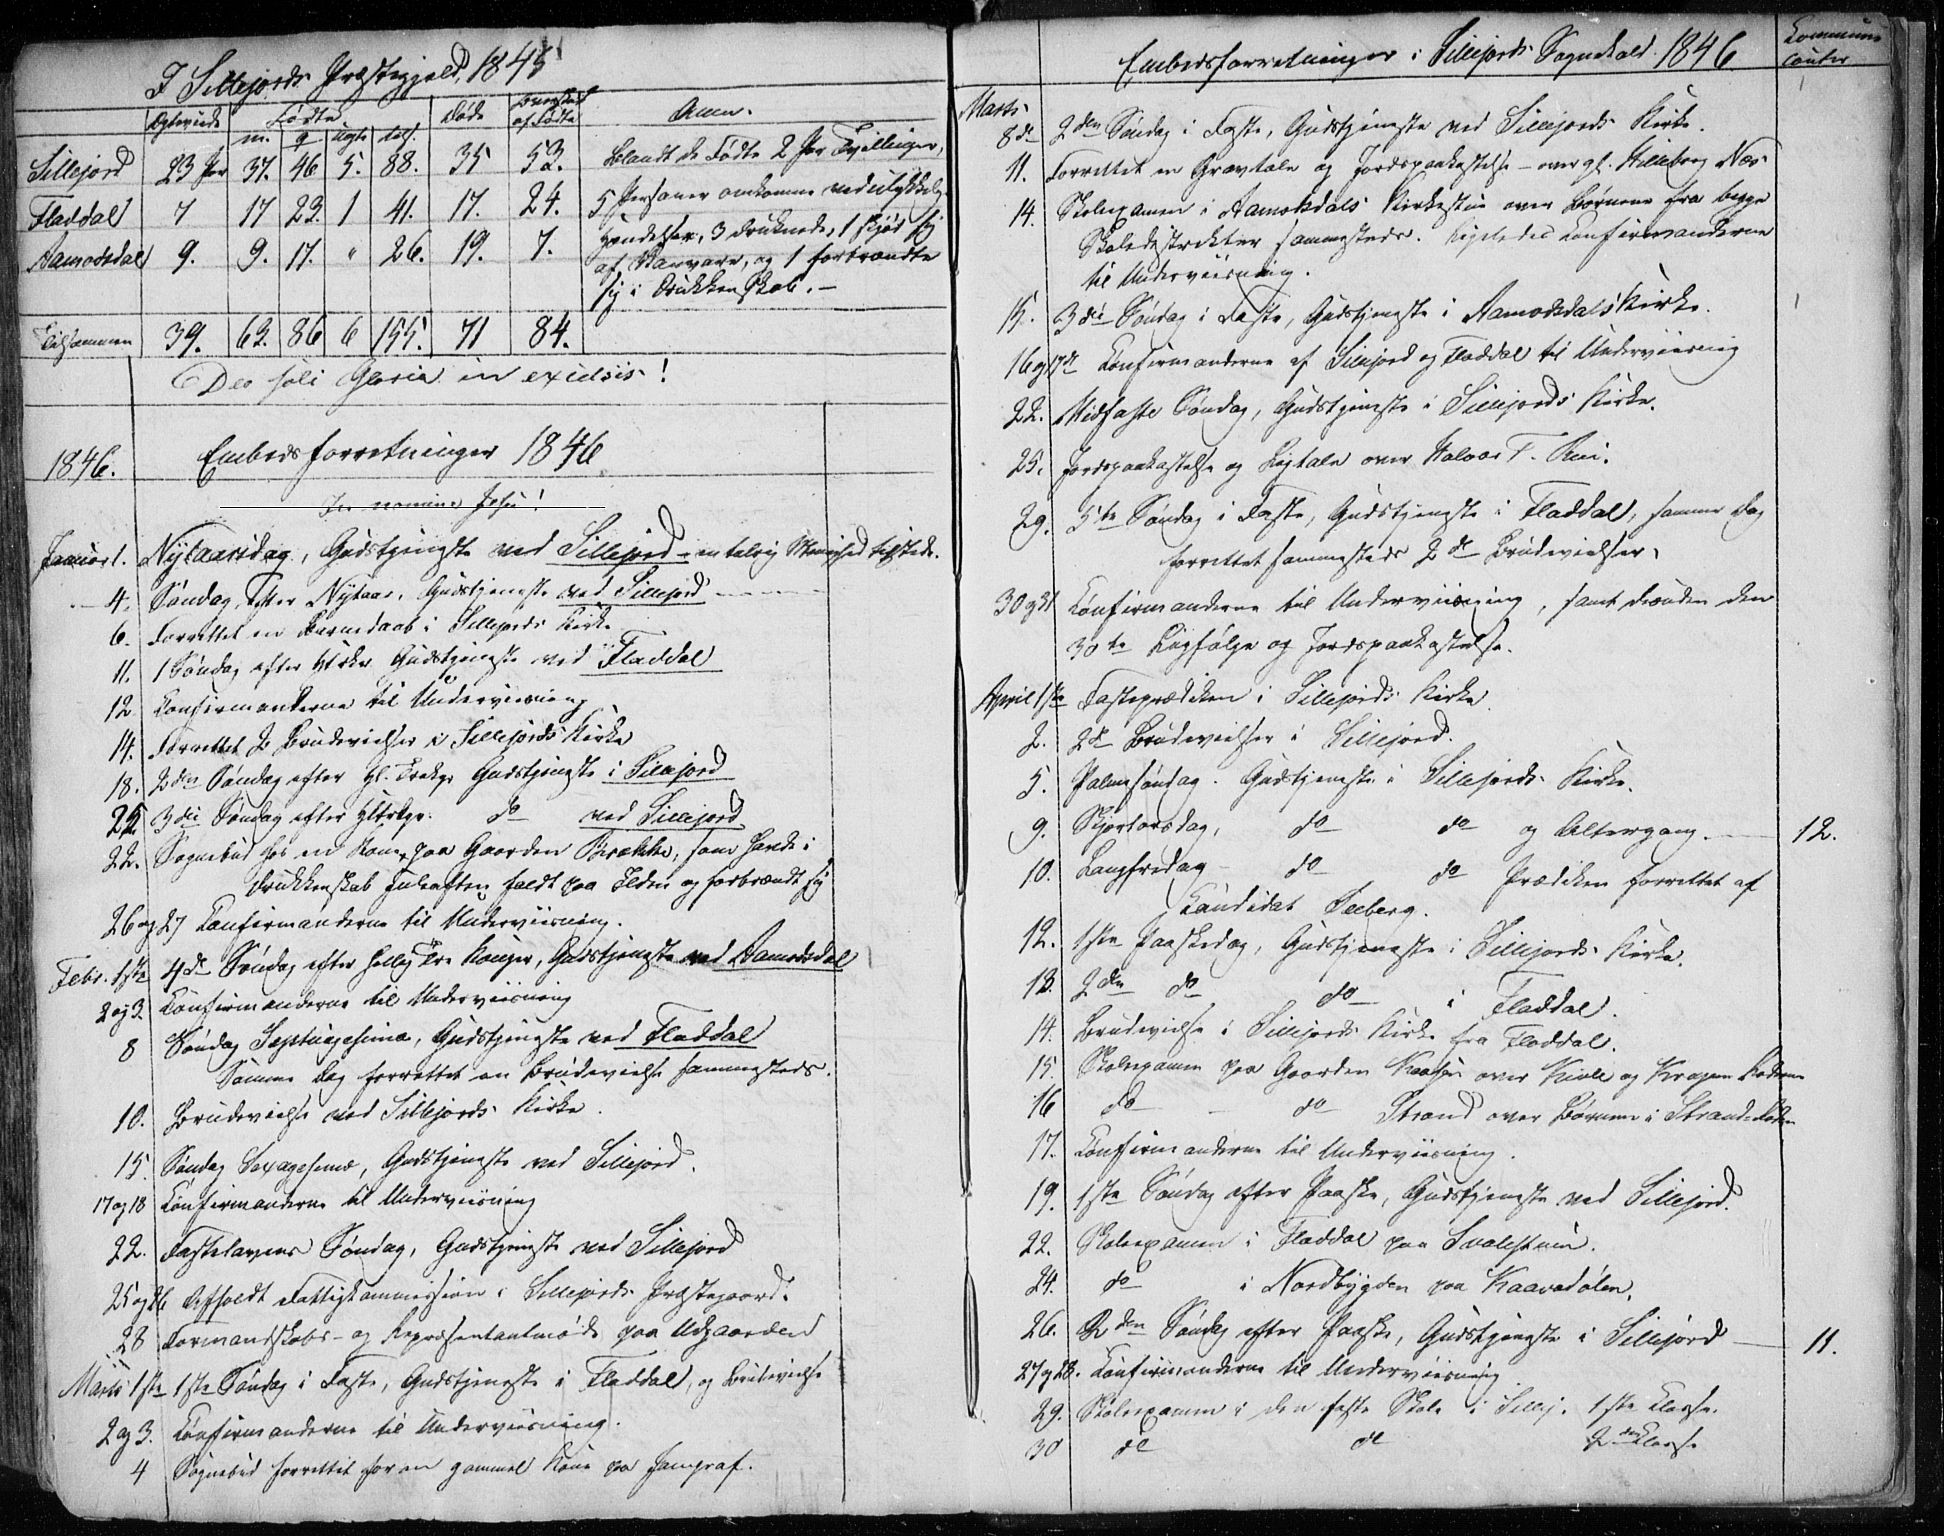 I Sillejords Præstegjeld, 1845
Egteviede Fødte Døde Overskud af Fødte Anm.
m. q uegte tils.
Sillejord 23 Par 37. 46 5. 88. 35 53. Blandt de Fødte 2 Par Tvillinger,
Fladdal 7 17 23. 1 41. 17. 24. 5 Personer omkomne ved ulykkelig
Aamodsdal 9. 9. 17. " 26. 19. 7. Hændelser, 3 druknede, 1 skjød sig
af Vanvare, og 1 forbrændte
sig i Drukkenskab. –
Tilsammen 39. 63. 86 6 155. 71 84.
Deo soli Gloria in excelsis!
1846. Embedsforretninger 1846
In nomine Jesu!
Januar 1. Nytaarsdag, Gudstjeneste ved Sillejord – en talrig Menighed tilstede.
4. Søndag efter Nytaar, Gudstjeneste ved Sillejord
6. Forrettet en Barnedaab i Sillejords Kirke
11. 1 Søndag efter Gudstjeneste ved Fladdal
12 Confirmanderne til Underviisning
14. Forrettet 2 Brudevielser i Sillejords Kirke
18. 2den Søndag efter Hl. Trekgr. Gudstjeneste i Sillejord
25 3die Søndag efter Hltrkgr. do ved Sillejord
22. Sognebud hos en Kone paa Gaarden Brække, som havde i
Drukkenskab Juleaften faldt paa Ilden og forbrændt sig
26 og 27 Confirmanderne til Underviisning.
Febr. 1ste 4de Søndag efter Hellig Tre Konger, Gudstjeneste ved Aamodsdal
2 og 3. Confirmanderne til Underviisning
8 Søndag Septuagesima, Gudstjeneste ved Fladdal
Samme Dag forrettet en Brudevielse sammesteds.
10. Brudevielse ved Sillejords Kirke.
15. Søndag Sexagesima, Gudstjeneste ved Sillejord.
17 og 18 Confirmanderne til Underviisning
22. Fastelavens Søndag, Gudstjeneste ved Sillejord
25 og 26 Afholdt Fattigkommission i Sillejords Præstegaard.
28 Formandskabs- og Repræsentantmøde paa Udgaarden
Marts 1ste 1ste Søndag i Faste, Gudstjeneste i Fladdal, og Brudevielse
2 og 3. Confirmanderne til Underviisning.
4 Sognebud forrettet for en gammel Kone pa
Embedsforretninger i Sillejords Sognekald 1846 Communicanter
Marts
8de 2den Søndag i Faste, Gudstjeneste ved Sillejords Kirke.
11. Forrettet en Gravtale og Jordspaakastelse – over gl. Næs
14. Skolexamen i Aamodsdals Kirkestue over Børnene fra begge
Skoledistrikter sammesteds. Ligeledes Confirmanderne
til Underviisning.
15. 3die Søndag i Faste, Gudstjeneste i Aamodsdals Kirke.
16 og 17de Confirmanderne af Sillejord og Fladdal til Underviisning
22. Midfaste Søndag, Gudstjeneste i Sillejords Kirke.
25. Jordspaakastelse og Ligtale over Halvor T.
29. 5te Søndag i Faste, Gudstjeneste i Fladdal, samme Dag
forrettet sammesteds 2de Brudevielser.
30 og 31 Confirmanderne til Underviisning, samt desuden den
30te Ligfølge og Jordspaakastelse.
April 1ste Fasteprædiken i Sillejords Kirke.
2. 2de Brudevielser i Sillejord.
5. Palmesøndag. Gudstjeneste i Sillejords Kirke.
9. Skjertorsdag, do do og Altergang. 12.
10. Langfredag – do do Prædiken forrettet af
Candidat Seeberg.
12. 1ste Paaskedag, Gudstjeneste i Sillejords Kirke.
13. 2den do do i Fladdal.
14. Brudevielse i Sillejords Kirke fra Fladdal.
15. Skolexamen paa Gaarden over og Roderne
16 do – do Strand over Børnene i Strands Roden
17. Confirmanderne til Underviisning.
19. 1ste Søndag efter Paaske, Gudstjeneste ved Sillejord.
22. Skolexamen i Fladdal paa
24. do i Nordbygden paa Kaavedølen.
26. 2den Søndag efter Paaske, Gudstjeneste i Sillejord 11.
27 og 28. Confirmanderne til Underviisning
29. Skolexamen i den faste Skole i Sillej. 1ste Classe.
30 do do 2den Classe